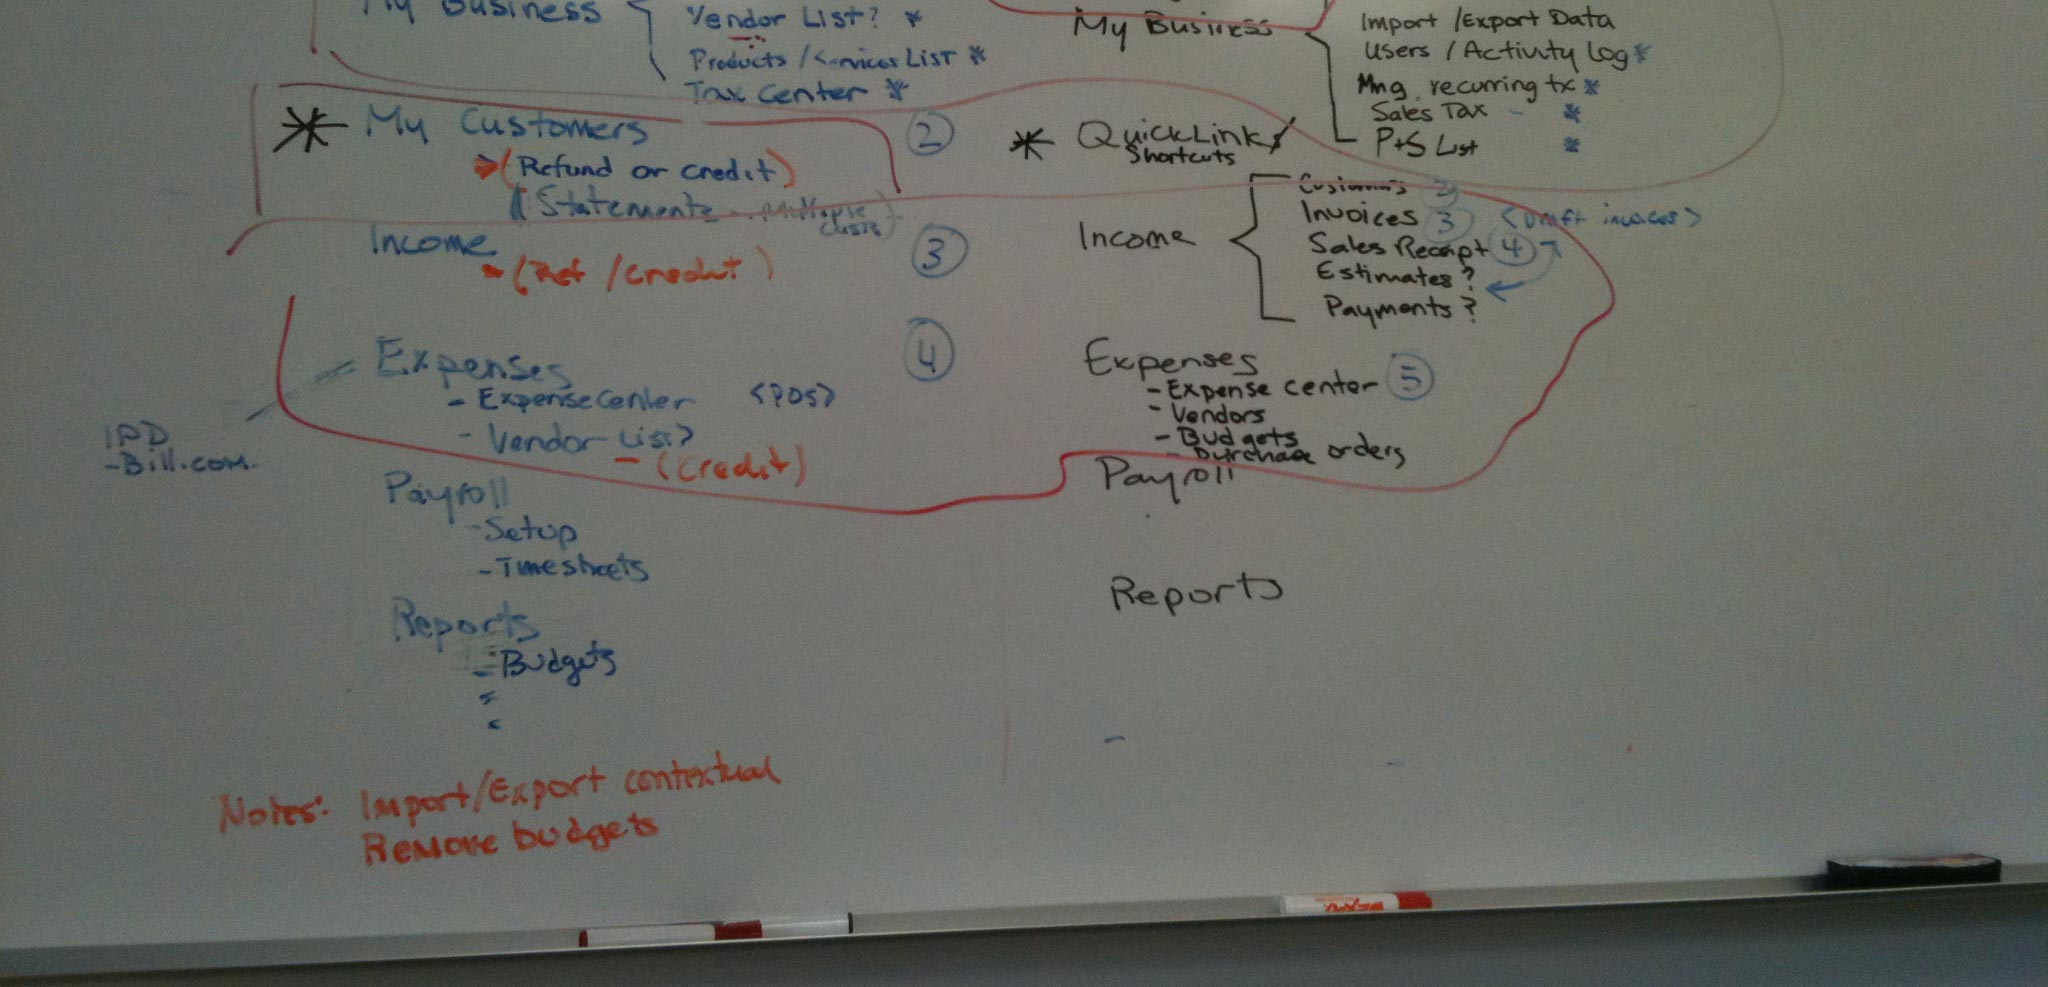 My Business
Vendor List? *
Products / Services List *
Tax Center *
* My Customers
2
(Refund or credit)
(Statements - Multiple
custs)
Income
3
(Ref / credit)
Expenses
4
- Expense Center <POS>
- Vendor List?
- (credit)
IPD
-Bill.com
Payroll
- Setup
- Timesheets
Reports
- Budgets
Notes: Import/Export contextual
Remove budgets
My Business
Import /Export Data
Users / Activity Log *
Mng. recurring tx *
Sales Tax - *
P+S List *
* QuickLinks
Shortcuts
Income
Customers 2
Invoices 3 <Draft invoices>
Sales Receipt 4
Estimates?
Payments?
Expenses
- Expense center 5
- Vendors
- Budgets
- Purchase orders
Payroll
Reports